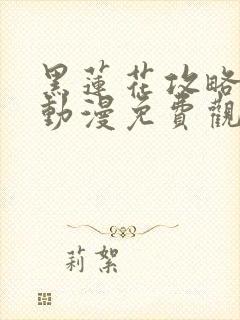 黑蓮花攻略
動漫免費觀
莉絮